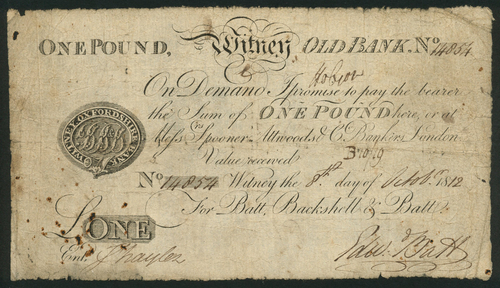 ONE POUND, Witney OLD BANK. No. 14854
On Demand I promise to pay the bearer
the Sum of ONE POUND here, or at
Messrs. Spooner Attwoods & Co. Bankers London
Value received
No. 14854 Witney the 8th day of Octobr. 1812
For Batt, Backshell & Batt
WITNEY OXFORDSHIRE BANK
BBB
£ ONE
Ent.
Edw. Batt